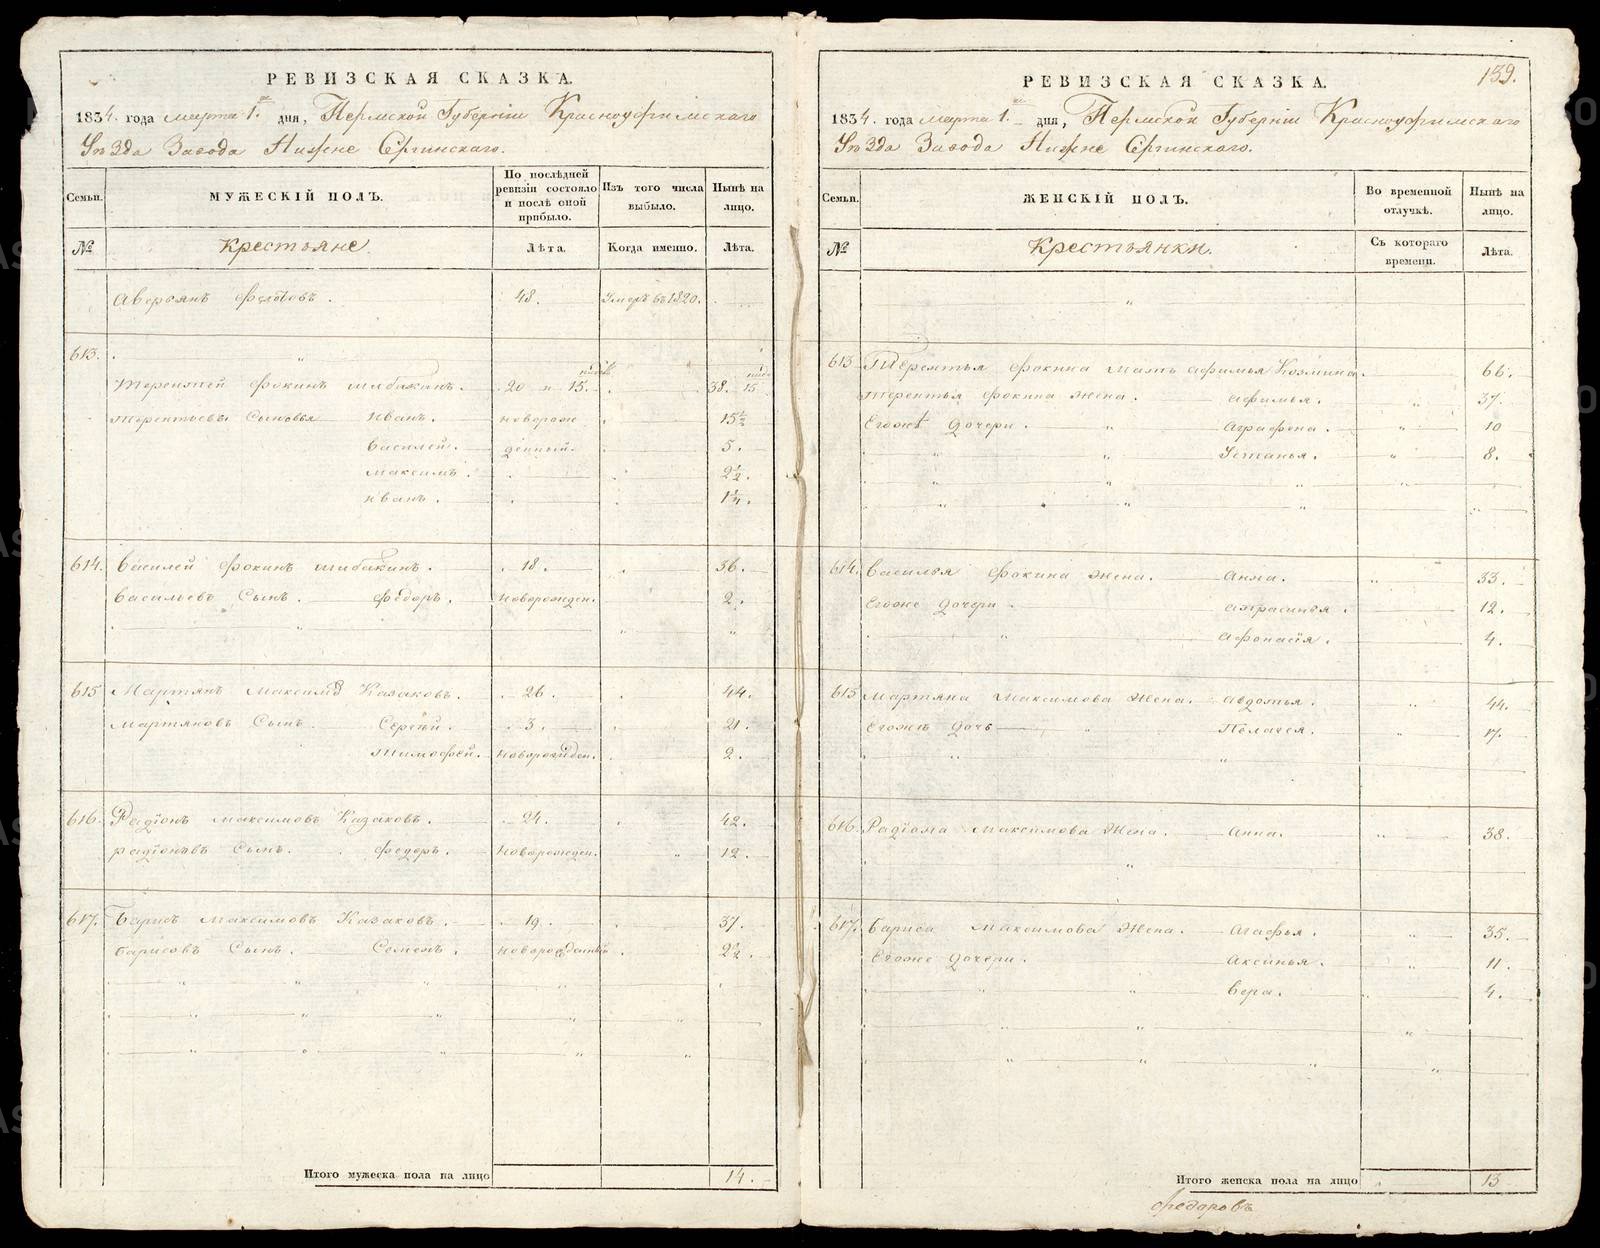 РЕВИЗСКАЯ СКАЗКА.
1834. года марта 1. дня, Пермской Губернiи Красноуфимскаго
Уѣзда Завода Нижне Сергинскаго.
Семьи.
МУЖЕСКIЙ ПОЛЪ.
По послѣдней ревизiи состояло и послѣ оной прибыло.
Изъ того числа выбыло.
Нынѣ на лицо.
№
Крестьяне
Лѣта.
Когда именно.
Лѣта.
Аверьянъ 48. Умеръ въ 1820.
613.
Терентей Фокинъ Шибакинъ. 20 и 15. 38. 15
Терентьевы Сыновья Иванъ. новорож 15½
Василей. денный. 5.
Максимъ. 2½.
Иванъ. 1¼.
614. Василей Фокинъ Шибакинъ. 18. 36.
Васильевъ Сынъ. Федоръ. Новорожден. 2.
615 Мартянъ Максимовъ Казаковъ. 26. 44.
Мартяновъ Сынъ. Сергѣй. 3. 21.
Тимофей. Новорожден. 2.
616. Радiонъ Максимовъ Казаковъ. 24. 42.
Радiоновъ Сынъ. Федоръ. Новорожден. 12.
617. Барисъ Максимовъ Казаковъ. 19. 37.
Барисовъ Сынъ. Семенъ. Новорожденный 2½.
Итого мужеска пола на лицо 14.
139.
РЕВИЗСКАЯ СКАЗКА.
1834. года марта 1. дня, Пермской Губернiи Красноуфимскаго
Уѣзда Завода Нижне Сергинскаго.
Семьи.
ЖЕНСКIЙ ПОЛЪ.
Во временной отлучкѣ.
Нынѣ на лицо.
№
Крестьянки.
Съ котораго времени.
Лѣта.
613 Терентья Фокина мать Афимья Козмина. 66.
Терентья Фокина жена. Афимья. 37.
Егожъ дочери. Аграфена. 10
Устинья. 8.
614. Василья Фокина жена. Анна. 33.
Егоже дочери. 12.
Афонасiя. 4.
615 Мартяна Максимова жена. Авдотья. 44.
Егожъ дочь Пелагея. 17.
616. Радiона Максимова жена. Анна. 38.
617. Бариса Максимова жена. Агафья. 35.
Егоже дочери. Аксинья. 11.
Вера. 4.
Итого женска пола на лицо 13
Федоровъ